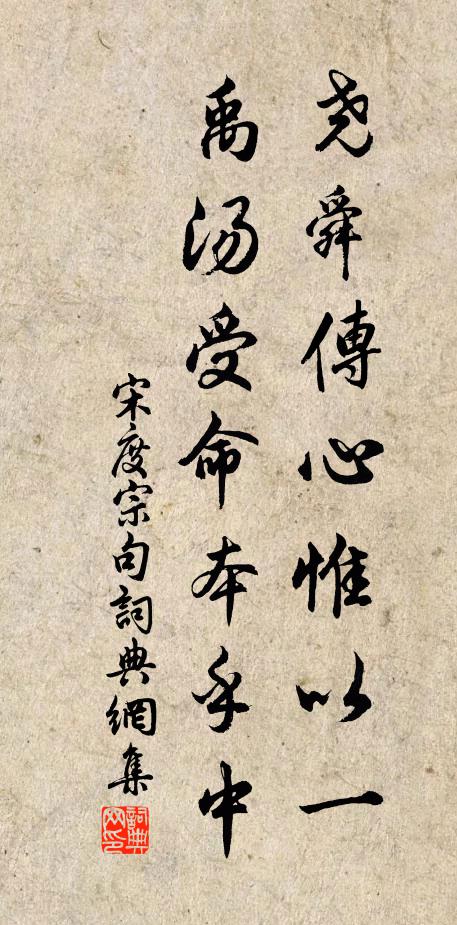 尧舜傳心惟以一
禹湯受命本乎中
宋度宗句詞典網集
詞典網印